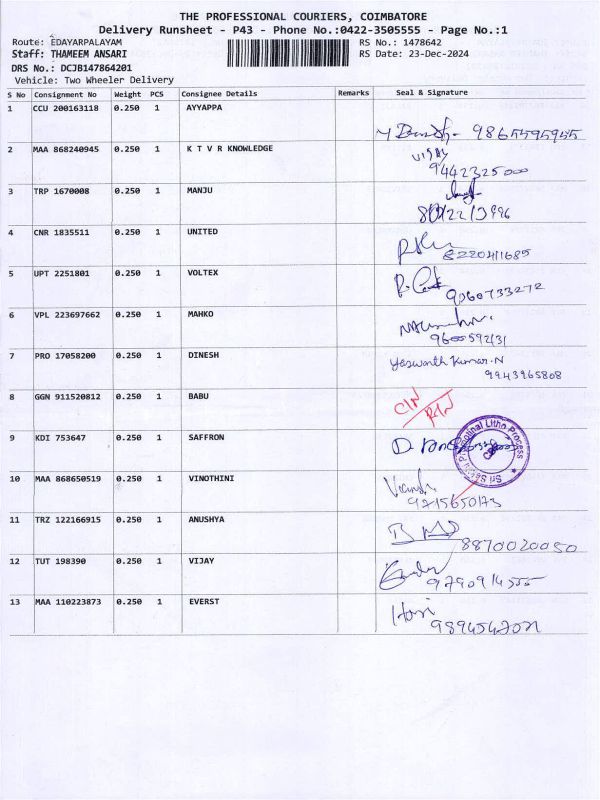 THE PROFESSIONAL COURIERS, COIMBATORE
Delivery Runsheet - P43 - Phone No.:0422-3505555 - Page No.:1
Route: EDAYARPALAYAM RS No.: 1478642
Staff: THAMEEM ANSARI RS Date: 23-Dec-2024
DRS No.: DCJB147864201
Vehicle: Two Wheeler Delivery
S No Consignment No Weight PCS Consignee Details Remarks Seal & Signature
1 CCU 200163118 0.250 1 AYYAPPA
9865595955
2 MAA 868240945 0.250 1 K T V R KNOWLEDGE
VIJAY
9442325000
3 TRP 1670008 0.250 1 MANJU
4 CNR 1835511 0.250 1 UNITED
8220411685
5 UPT 2251801 0.250 1 VOLTEX
9060733272
6 VPL 223697662 0.250 1 MAHKO
9600592131
7 PRO 17058200 0.250 1 DINESH
Yaswanth Kumar.N
9943965808
8 GGN 911520812 0.250 1 BABU
C/N
R/N
9 KDI 753647 0.250 1 SAFFRON
Sri Promotional Litho Process
CBE
10 MAA 868650519 0.250 1 VINOTHINI
9715650173
11 TRZ 122166915 0.250 1 ANUSHYA
8870020050
12 TUT 198390 0.250 1 VIJAY
9790914555
13 MAA 110223873 0.250 1 EVERST
Hari
9894547021